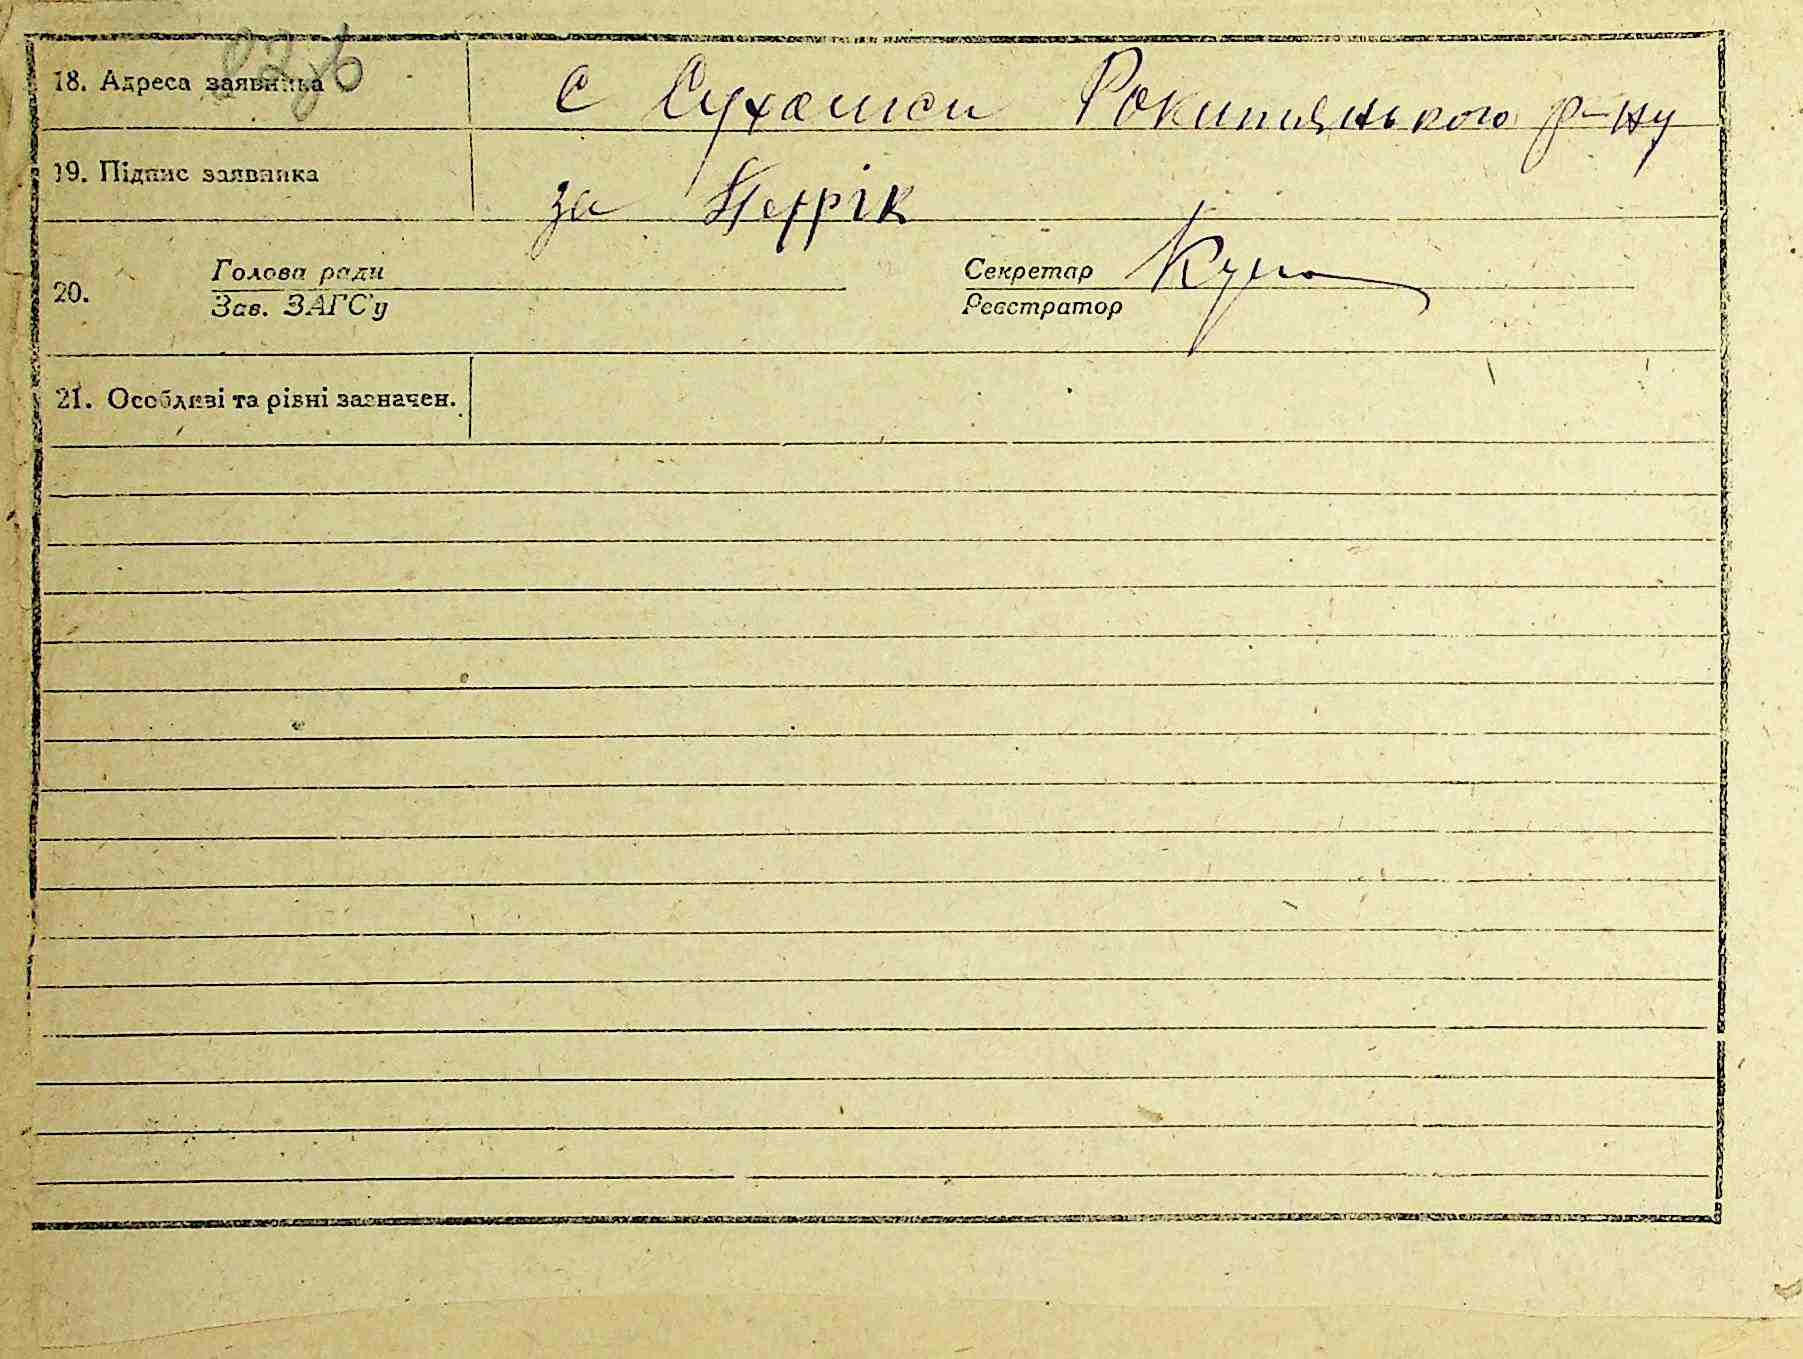 18. Адреса заявника с Сухолиси Рокитянського р-ну
19. Підпис заявника за Петрік
20. Голова ради Секретар
Зав. ЗАГС'у Реєстратор
21. Особливі та рівні зазначен.